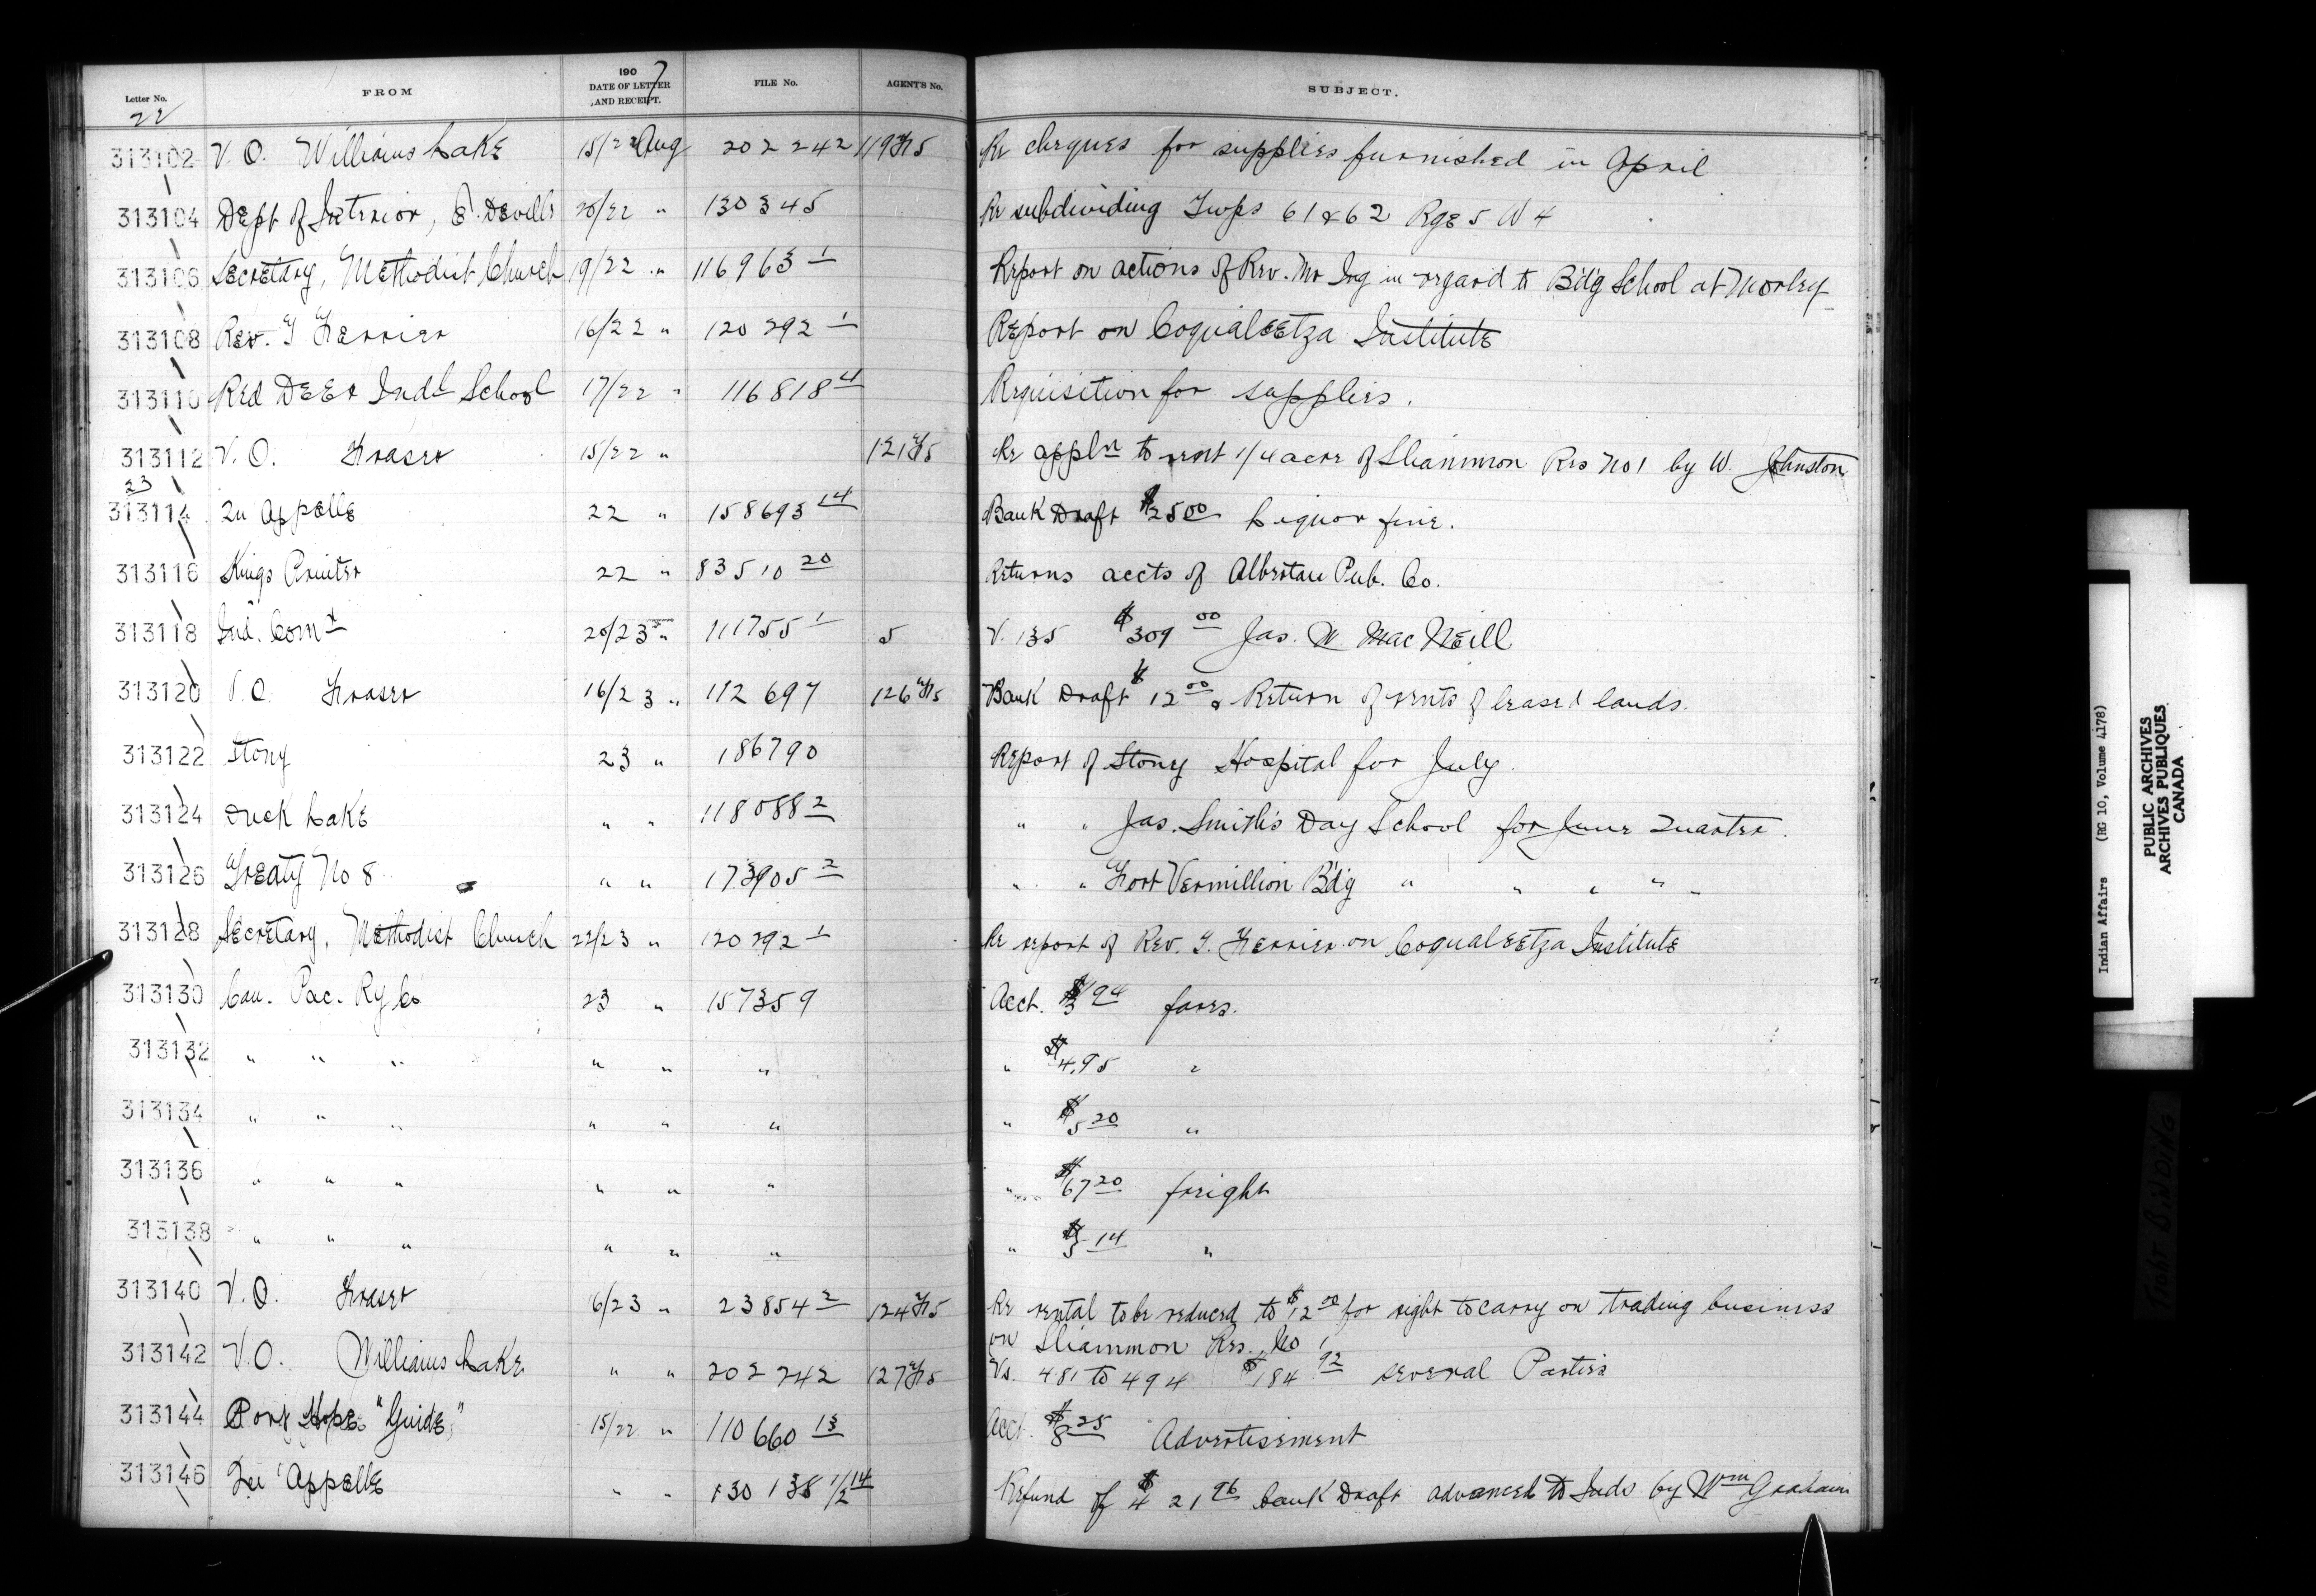 Letter No. FROM 190 7 DATE OF LETTER AND RECEIPT. FILE No. AGENT'S No. SUBJECT.
22
313102 V. O. Williams Lake 15/22 Aug 202242 119 Re cheques for supplies furnished in April
313104 Dept of Interior, E. Deville 20/22 " 130345 Re subdividing Twps 61 & 62 Rge 5 W 4
313106 Secretary, Methodist Church 19/22 " 116963 1 Report on actions of Rev. Mr in regard to B'd'g School at Morley
313108 Rev. T Ferrier 16/22 " 120292 1 Report on Coqualeetza Institute
313110 Red Deer Indl School 17/22 " 116818 4 Requisition for supplies.
313112 V. O. Fraser 15/22 " 121 Re appln to rent 1/4 acre of Sliammon Res No 1 by W. Johnston
23
313114 Qu Appelle 22 " 158693 14 Bank Draft $25 00 Liquor fine.
313116 Kings Printer 22 " 83510 20 Returns accts of Albertan Pub. Co.
313118 Ind. Comr 20/23 " 111755 1 5 V. 135 $309 00 Jas. W. MacNeill
313120 V. O. Fraser 16/23 " 112697 126 Bank Draft $12 00 & Return of rents of leased lands.
313122 Stony 23 " 186790 Report of Stony Hospital for July.
313124 Duck Lake " " 118088 2 " " Jas. Smith's Day School for June Quarter.
313126 Treaty No 8 " " 173905 2 " " Fort Vermillion B'd'g " " " "
313128 Secretary, Methodist Church 22/23 " 120292 1 Re report of Rev. T. Ferrier on Coqualeetza Institute
313130 Can. Pac. Ry Co 23 " 157359 Acct. 94 fares.
313132 " " " " " " " $4.95 "
313134 " " " " " " " $5 20 "
313136 " " " " " " " $67 20 freight
313138 " " " " " " " 14 "
313140 V. O. Fraser 16/23 " 23854 2 124 Re rental to be reduced to $12 00 for right to carry on trading business
on Sliammon Res. No 1
313142 V. O. Williams Lake " " 202242 127 Vs. 481 to 494 $184 92 several Parties
313144 Port Hope "Guide" 15/22 " 110660 13 Acct. $8 25 Advertisement
313146 Qu'Appelle " " 130138 1/2 14 Refund of $ 21 96 bank Draft advanced to Inds by Wm Graham
Indian Affairs (RG 10, Volume 4178)
PUBLIC ARCHIVES
ARCHIVES PUBLIQUES
CANADA
TIGHT BINDING